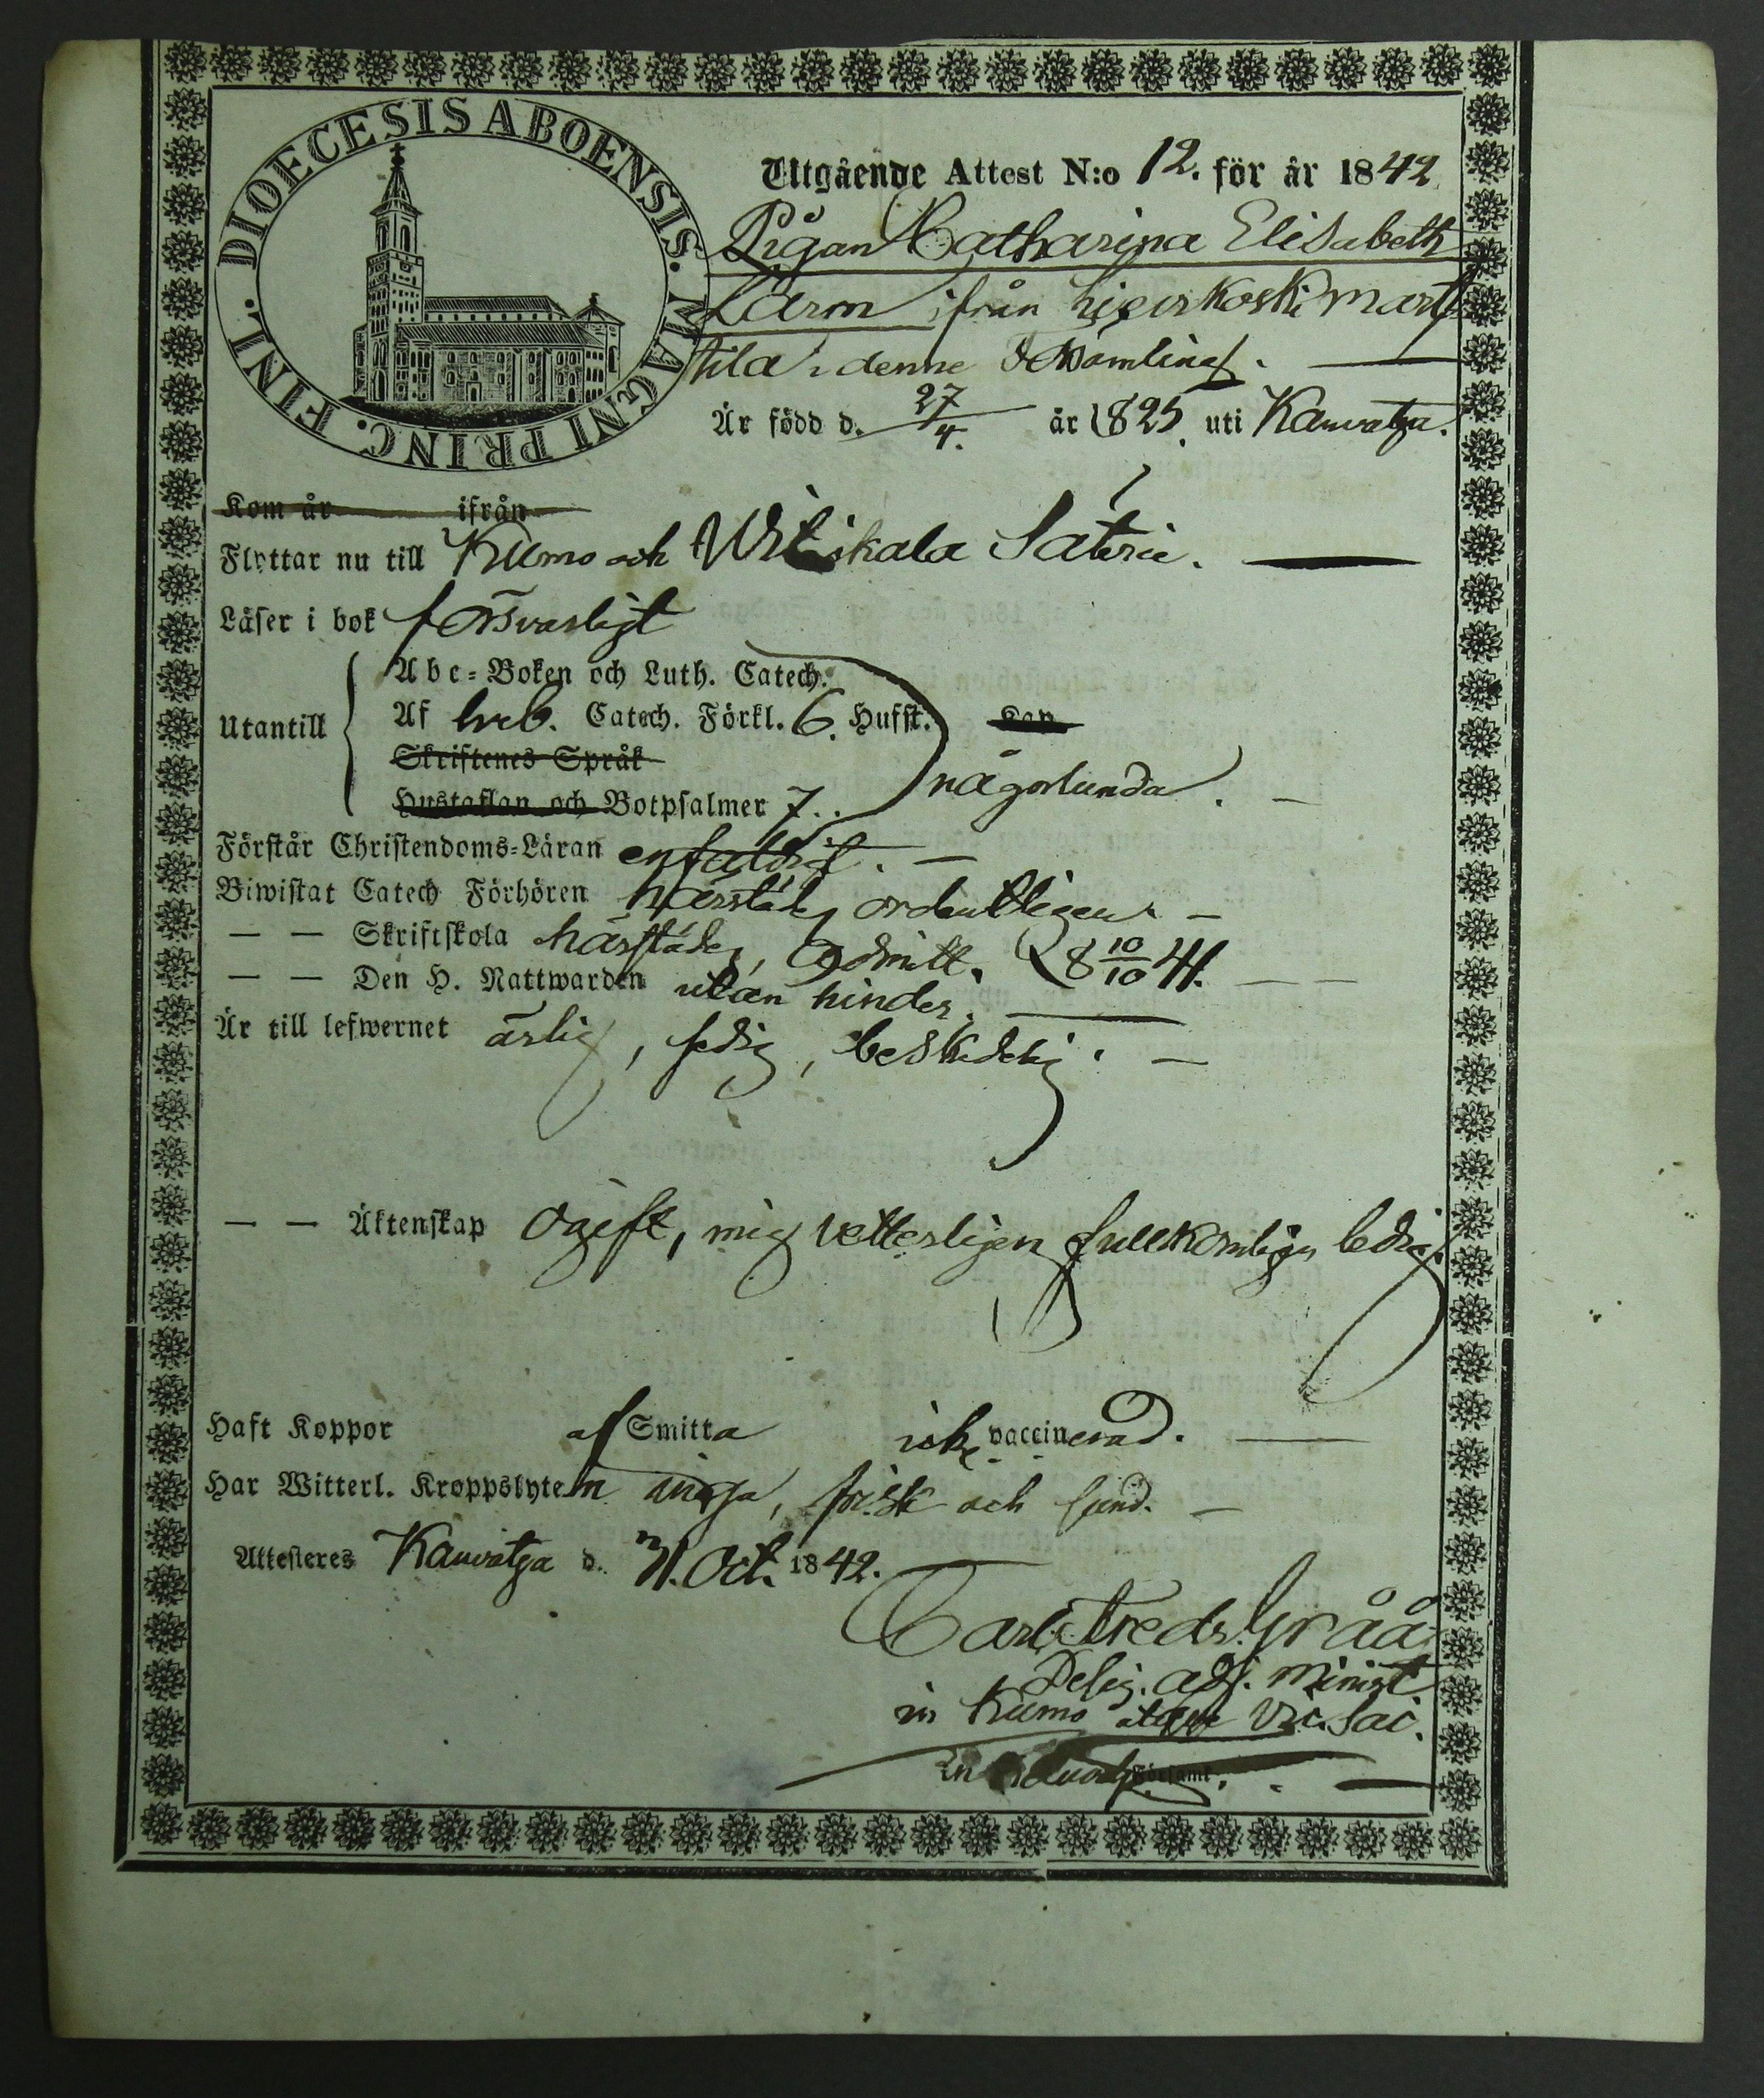 DIOECESIS ABOENSIS. MAGNI PRINC. FINL.
Utgående Attest N:o 12. för år 1842
Pigan Catharina Elisabeth
Lärm ifrån Marti
tila i denne
Är född d. 27/4. år 1825. uti Kauvatza.
Kom år ifrån
Flyttar nu till Kumo och Witikala Säterie.
Läser i bok försvarligt
Utantill
Abc-Boken och Luth. Catech.
Af Catech. Förkl. 6. Hufst. Kap
Skriftenes Språk
Hustaflan och Botpsalmer 7. någorlunda.
Förstår Christendoms-Läran enfaldigt.
Biwistat Catech Förhören härstädes ordentligen. –
— — Skriftskola härstädes, admitt. 18 10/10 41.
— — Den H. Nattwarden utan hinder.
Är till lefwernet ärlig, sedig, beskedelig. –
— — Äktenskap ogift, mig vetterligen fullkomligen ledig.
Haft Koppor af Smitta icke vaccinerad.
Har Witterl. Kroppslyten inga, frisk och sund. –
Attesteres Kauvatza d. 31. Oct. 1842.
Carl Fredr. Gråå
Delig. adj. Minist
in Kumo atque Vic. Sac.
in Församl.